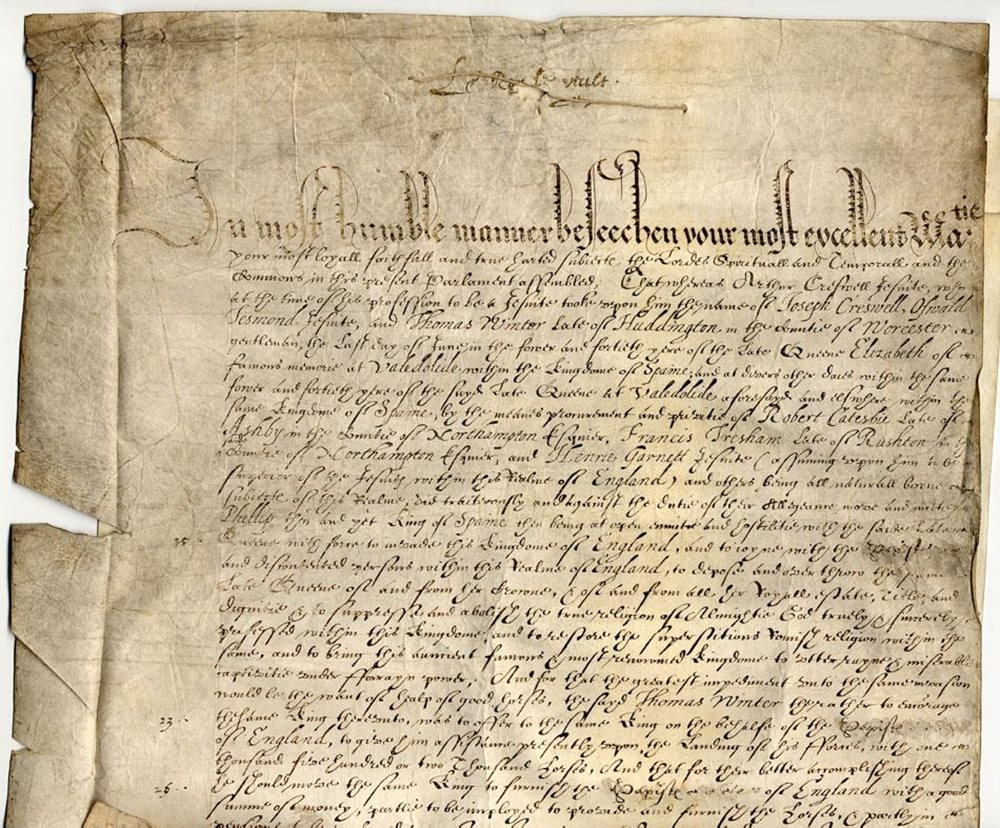 Le Roy le veult.
In most humble manner beseechen your most excellent Matie
your most loyall faithfull and true harted subiects the Lordes Spirituall and Temporall and the
Commons in this present Parliament assembled; That whereas Arthur Creswell Jesuite, who
at the time of his profession to be a Jesuite tooke upon him the name of Joseph Creswell, Oswald
Tesmond Jesuite, and Thomas Winter late of Huddington in the Countie of Worcester,
gentleman, the Last day of June in the fower and fortieth yere of the Late Queene Elizabeth of
famous memorie at Valedolide within the Kingdome of Spaine, and at divers other daies within the same
fower and fortieth yere of the sayd Late Queene at Valedolide aforesayd and elswhere within the
same Kingdome of Spaine, by the meanes procurement and privitie of Robert Catesbie Late of
Ashby in the Countie of Northampton Esquier, Francis Tresham Late of Rushton in the
Countie of Northampton Esquier, and Henrie Garnett Jesuite (assuming upon him to be
superior of the Jesuits within this Realme of England) and others being all naturall borne
subiects of this Realme, did traiterously and against the dutie of their Allegeance move and
Phillip then and yet King of Spaine then being at open enmitie and hostilitie with the saide Late
15 Queene with force to invade this Kingdome of England, and to ioyne with the Papists
and discontented persons within this Realme of England, to depose and overthrow the same
Late Queene of and from her Crowne, & of and from all her Royall estate, Title and
dignitie & to suppresse and abolish the true religion of Almightie God truely & sincerely
professed within this Kingdome, and to restore the superstitious Romish religion within the
same, and to bring this auncient famous & most renowned Kingdome to utter ruyne & miserable
captivitie under fforrayn power; And for that the greatest impediment unto the same invasion
would be the want of healp of good horses, the sayd Thomas Winter the rather to encorage
23 the same King thereunto, was to offer to the same King on the behalfe of the Papists
of England, to give him assistance presently upon the Landing of his fforces, with one
thousand five hundred or two Thousand horses, And that for their better accomplishing thereof
26 he should move the same King to furnish the Papists of England with a good
summe of money, partlie to be imployed to provide and furnish the horses, & partly in